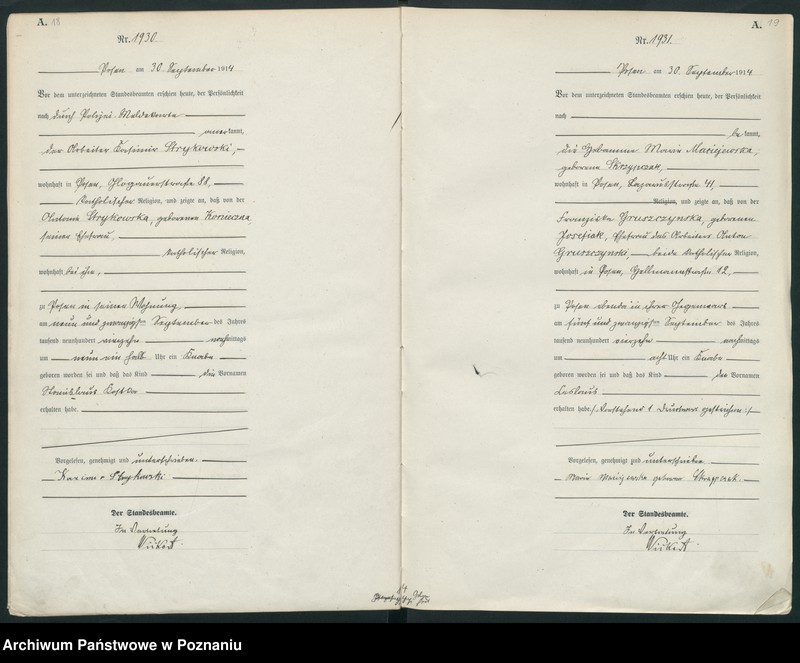 A. 18
Nr. 1930.
Posen am 30. September 1914
Vor dem unterzeichneten Standesbeamten erschien heute, der Persönlichkeit
nach durch Polizei-Meldekarte
anerkannt,
der Arbeiter Kasimir Strykowski,
wohnhaft in Posen, Glogauerstraße 88,
katholischer Religion, und zeigte an, daß von der
Strykowska, geborenen
seiner Ehefrau
katholischer Religion,
wohnhaft bei ihm,
zu Posen in seiner Wohnung
am neun und zwanzigsten September des Jahres
tausend neunhundert vierzehn nachmittags
um neun ein halb Uhr ein Knabe
geboren worden sei und daß das Kind die Vornamen
Stanislaus Kostka
erhalten habe.
Vorgelesen, genehmigt und unterschrieben.
Strykowski
Der Standesbeamte.
In Vertretung
A. 19
Nr. 1931.
Posen am 30. September 1914
Vor dem unterzeichneten Standesbeamten erschien heute, der Persönlichkeit
nach
bekannt,
die Hebamme Maria Maciejewska,
geborene Skrzypczak,
wohnhaft in Posen, 41,
Religion, und zeigte an, daß von der
Franziska Gruszczynska, geborenen
Josefiak, Ehefrau des Arbeiters Anton
Gruszczynski, beide katholischer Religion,
wohnhaft in Posen, 12,
zu Posen ebenda in ihrer Gegenwart
am fünf und zwanzigsten September des Jahres
tausend neunhundert vierzehn nachmittags
um acht Uhr ein Knabe
geboren worden sei und daß das Kind den Vornamen
Ceslaus
erhalten habe. Vorstehend 1 Druckwort gestrichen
Vorgelesen, genehmigt und unterschrieben
Maria Maciejewska geborene Skrzypczak
Der Standesbeamte.
In Vertretung
Archiwum Państwowe w Poznaniu